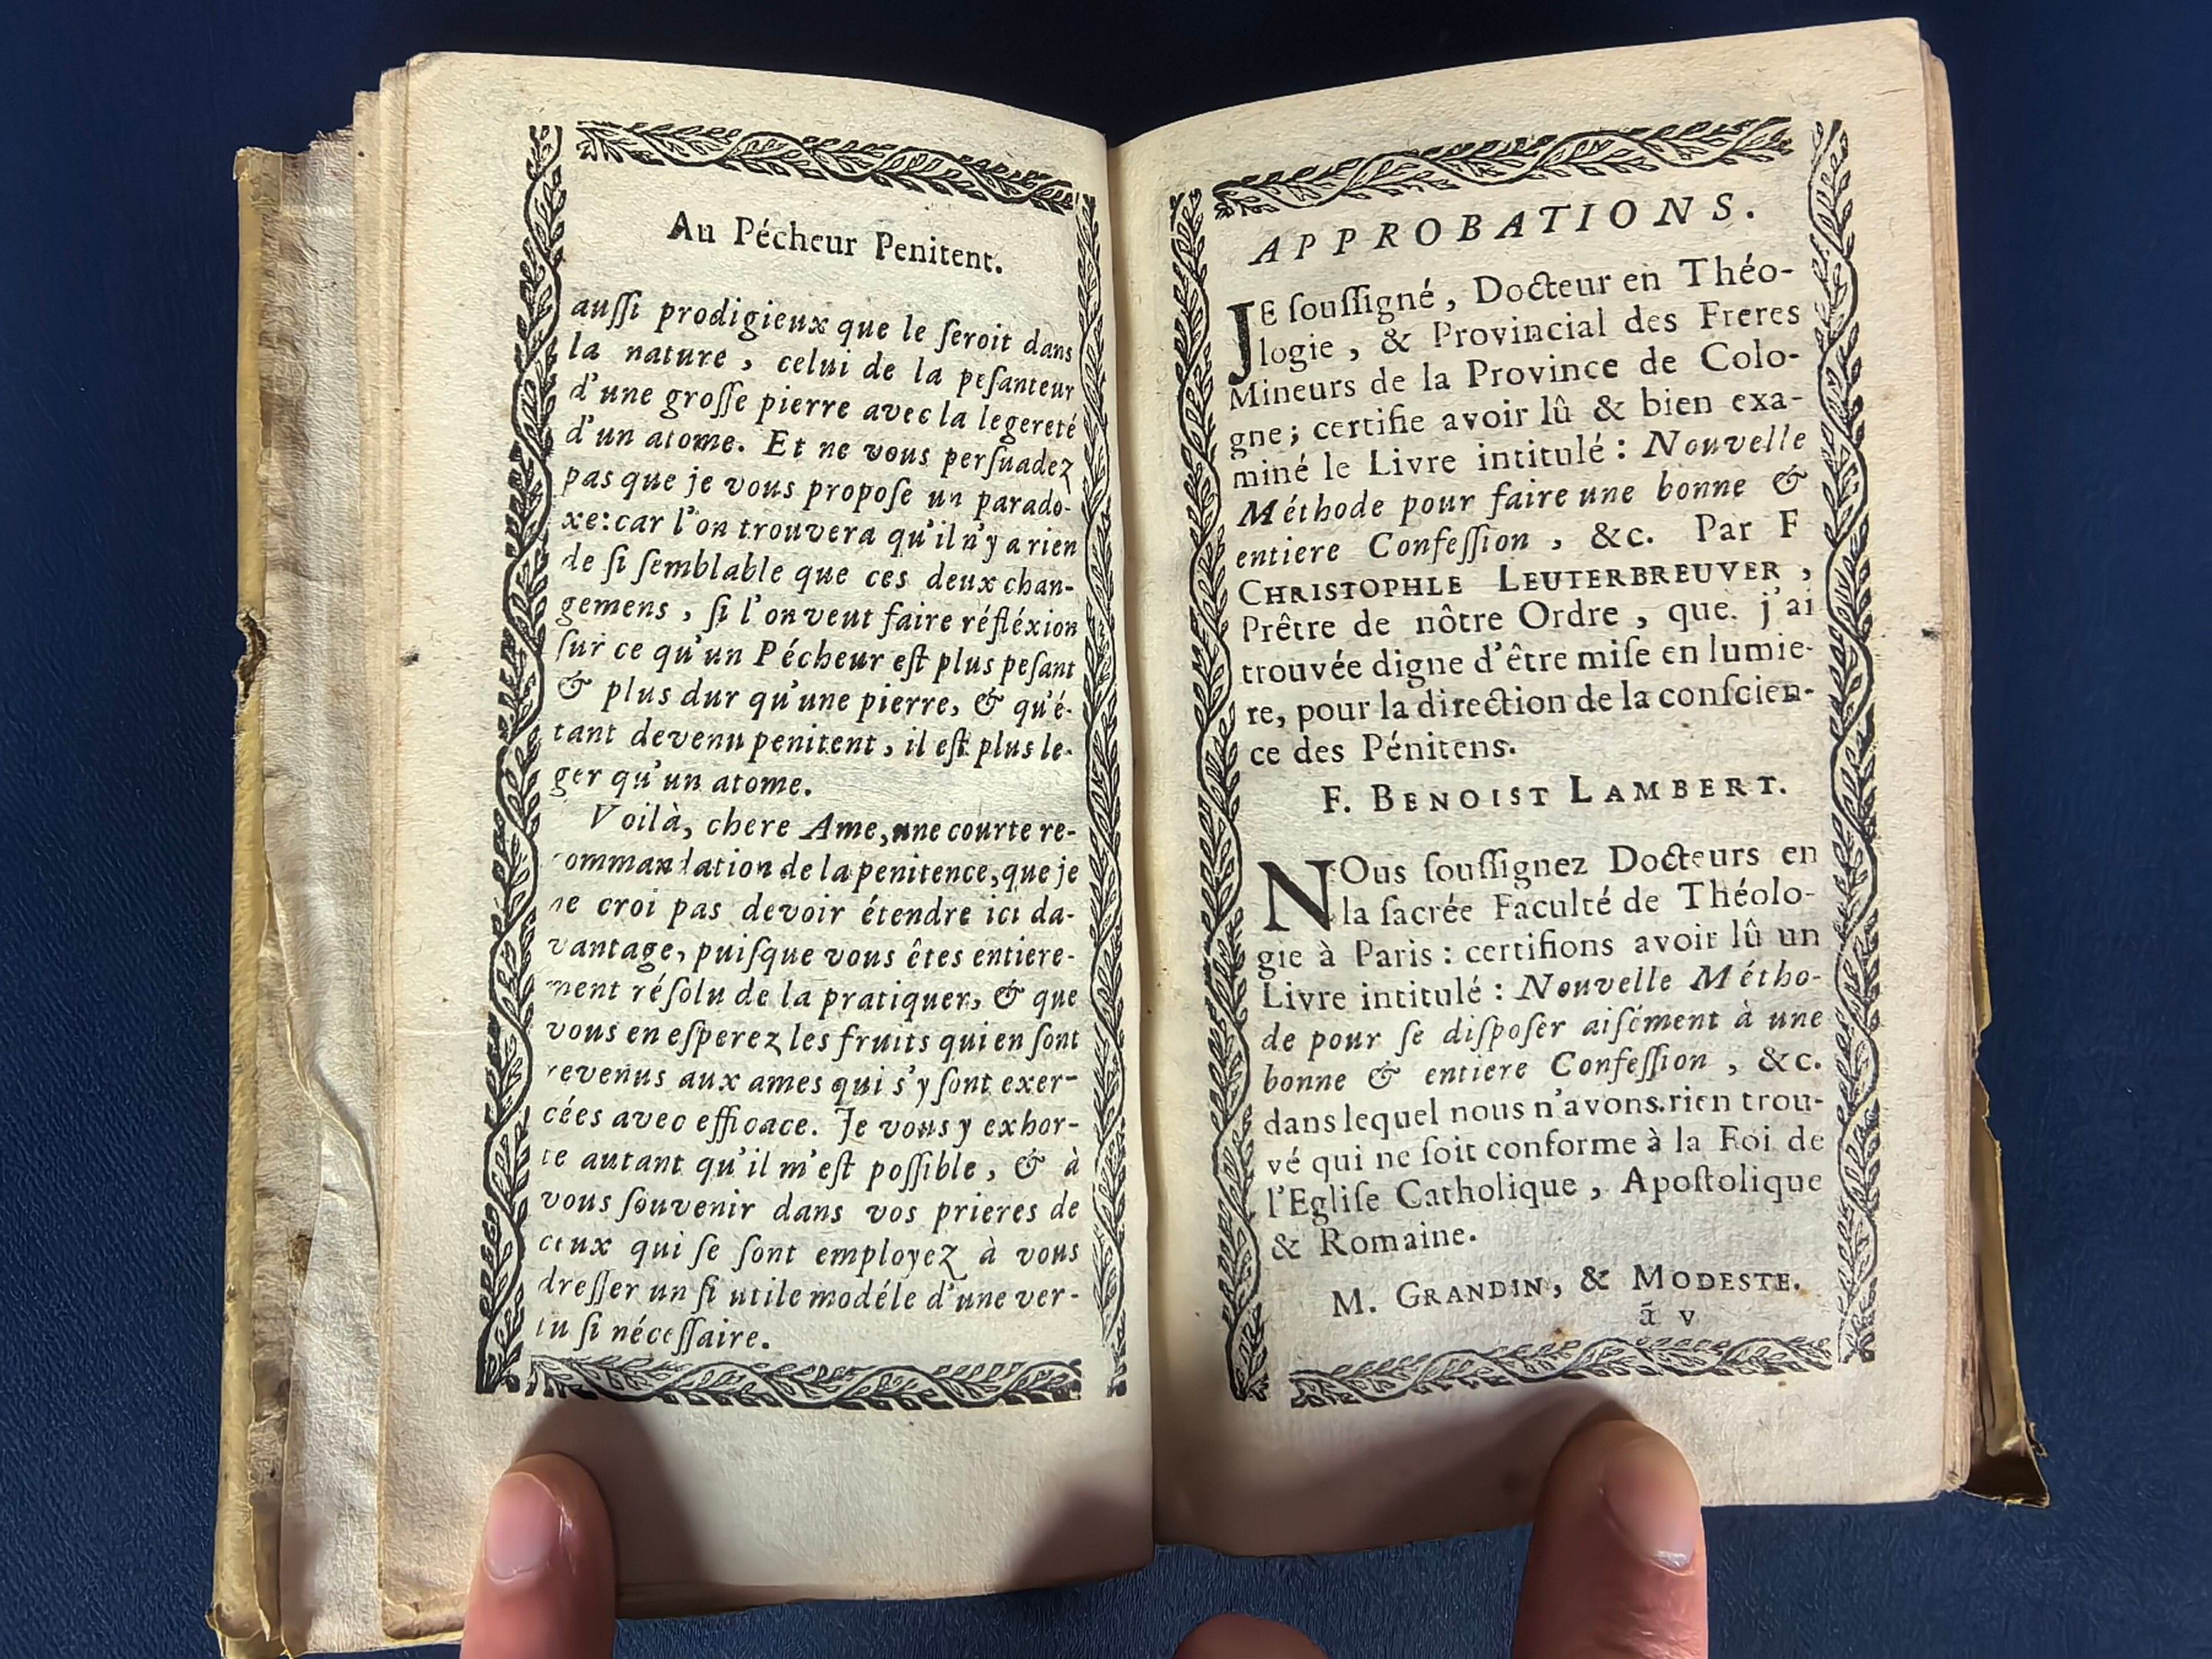 Au Pécheur Penitent.
auſſi prodigieux que le ſeroit dans
la nature, celui de la peſanteur
d'une groſſe pierre avec la legereté
d'un atome. Et ne vous perſuadez
pas que je vous propoſe un parado-
xe: car l'on trouvera qu'il n'y a rien
de ſi ſemblable que ces deux chan-
gemens, ſi l'on veut faire réfléxion
ſur ce qu'un Pécheur eſt plus peſant
& plus dur qu'une pierre, & qu'é-
tant devenu penitent, il eſt plus le-
ger qu'un atome.
Voilà, chere Ame, une courte re-
commandation de la penitence, que je
ne croi pas devoir étendre ici da-
vantage, puiſque vous êtes entiere-
ment réſolu de la pratiquer, & que
vous en eſperez les fruits qui en ſont
revenus aux ames qui s'y ſont exer-
cées avec efficace. Je vous y exhor-
te autant qu'il m'eſt poſſible, & à
vous ſouvenir dans vos prieres de
ceux qui ſe ſont employez à vous
dreſſer un ſi utile modéle d'une ver-
tu ſi néceſſaire.
APPROBATIONS.
JE ſouſſigné, Docteur en Théo-
logie, & Provincial des Freres
Mineurs de la Province de Colo-
gne; certifie avoir lû & bien exa-
miné le Livre intitulé: Nouvelle
Méthode pour faire une bonne &
entiere Confeſſion, &c. Par F
CHRISTOPHLE LEUTERBREUVER,
Prêtre de nôtre Ordre, que j'ai
trouvée digne d'être miſe en lumie-
re, pour la direction de la conſcien-
ce des Pénitens.
F. BENOIST LAMBERT.
NOus ſouſſignez Docteurs en
la ſacrée Faculté de Théolo-
gie à Paris: certifions avoir lû un
Livre intitulé: Nouvelle Métho-
de pour ſe diſpoſer aiſément à une
bonne & entiere Confeſſion, &c.
dans lequel nous n'avons rien trou-
vé qui ne ſoit conforme à la Foi de
l'Egliſe Catholique, Apoſtolique
& Romaine.
M. GRANDIN, & MODESTE.
ã v